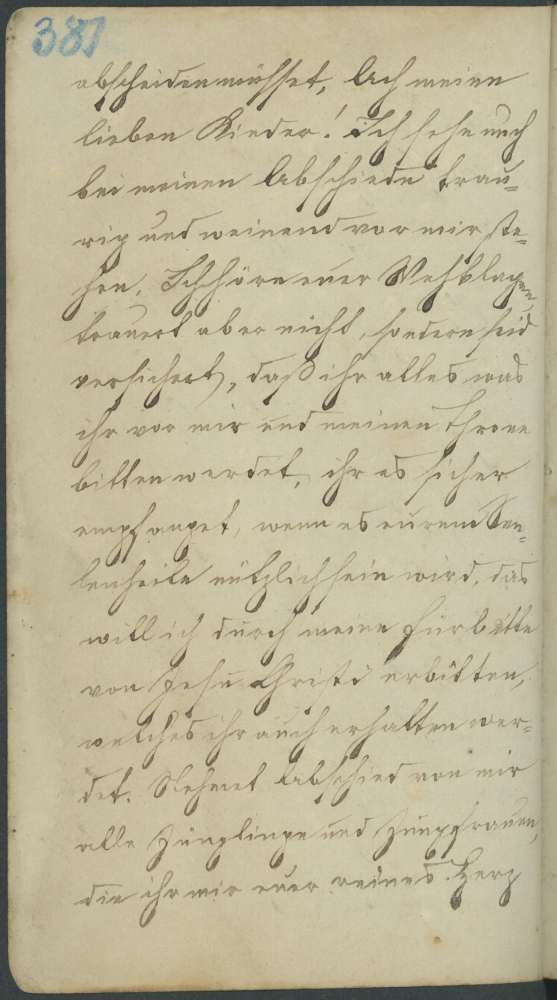 381
abscheiden müsset, Ach meine
lieben Kinder! Ich sehe euch
bei meinen Abschiede trau=
rig und weinend vor mir ste=
hen, Ich höre euer Wehklagen,
trauert aber nicht, sondern seid
versichert, daß ihr alles was
ihr vor mir und meinen Throne
bitten werdet, ihr es sicher
empfanget, wenn es eurem See=
lenheile nützlich sein wird, das
will ich durch meine Fürbitte
von Jesu Christi erbitten,
welches ihr auch erhalten wer=
det. Nehmet Abschied von mir
alle Jünglinge und Jungfrauen,
die ihr mir euer reines Herz